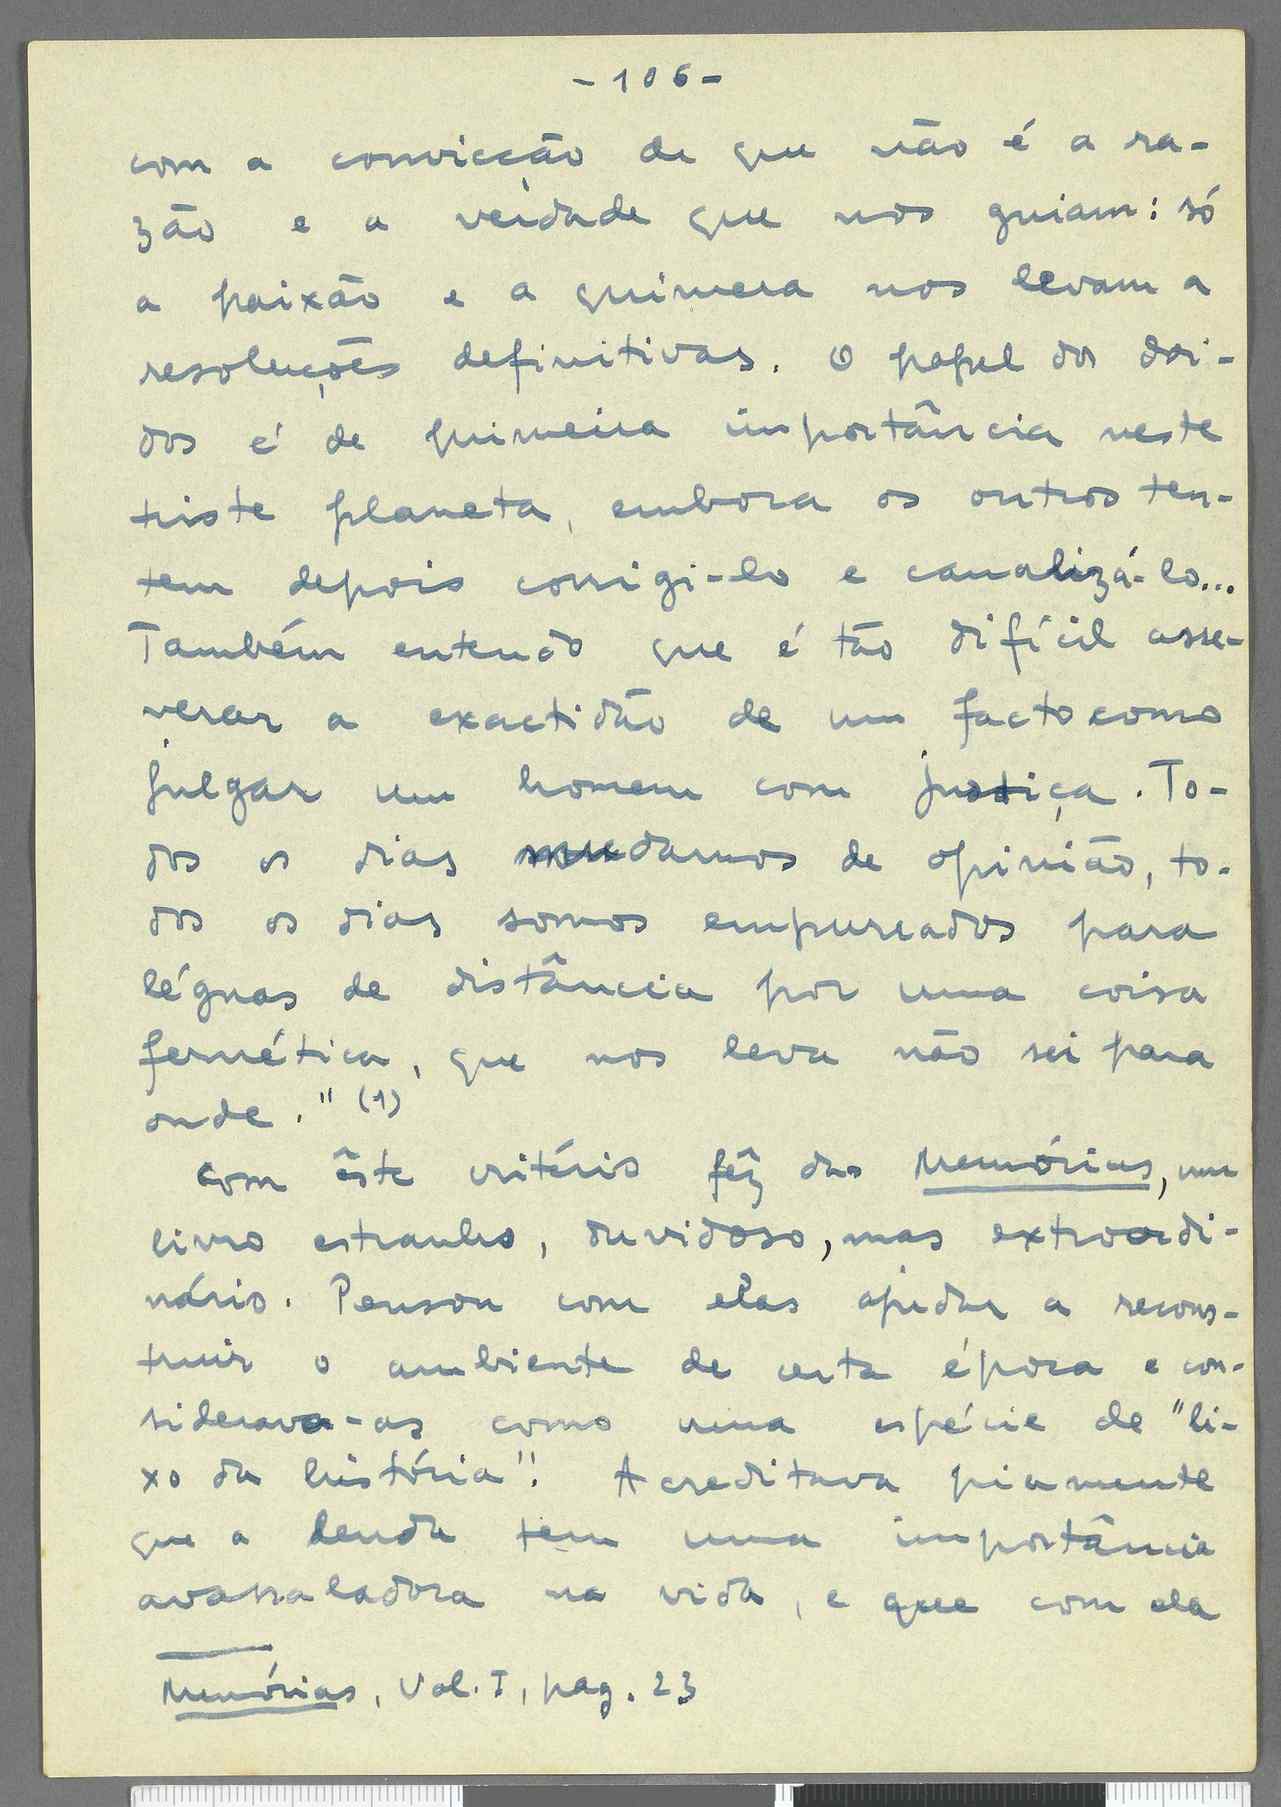 - 106 -
com a convicção de que não é a ra-
zão e a verdade que nos guiam: só
a paixão e a quimera nos levam a
resoluções definitivas. O papel dos doi-
dos é de primeira importância neste
triste planeta, embora os outros ten-
tem depois corrigi-lo e canalizá-lo...
Também entendo que é tão difícil asse-
verar a exactidão de um facto como
julgar um homem com justiça. To-
dos os dias mudamos de opinião, to-
dos os dias somos empurrados para
léguas de distância por uma coisa
fernética, que nos leva não sei para
onde." (1)
Com êste critério fêz das Memórias, um
livro estranho, duvidoso, mas extraordi-
nário. Pensou com elas ajudar a recons-
truir o ambiente de certa época e con-
siderava-as como uma espécie de "li-
xo da história". Acreditava piamente
que a lenda tem uma importância
avassaladora na vida, e que com ela
Memórias, Vol. I, pag. 23